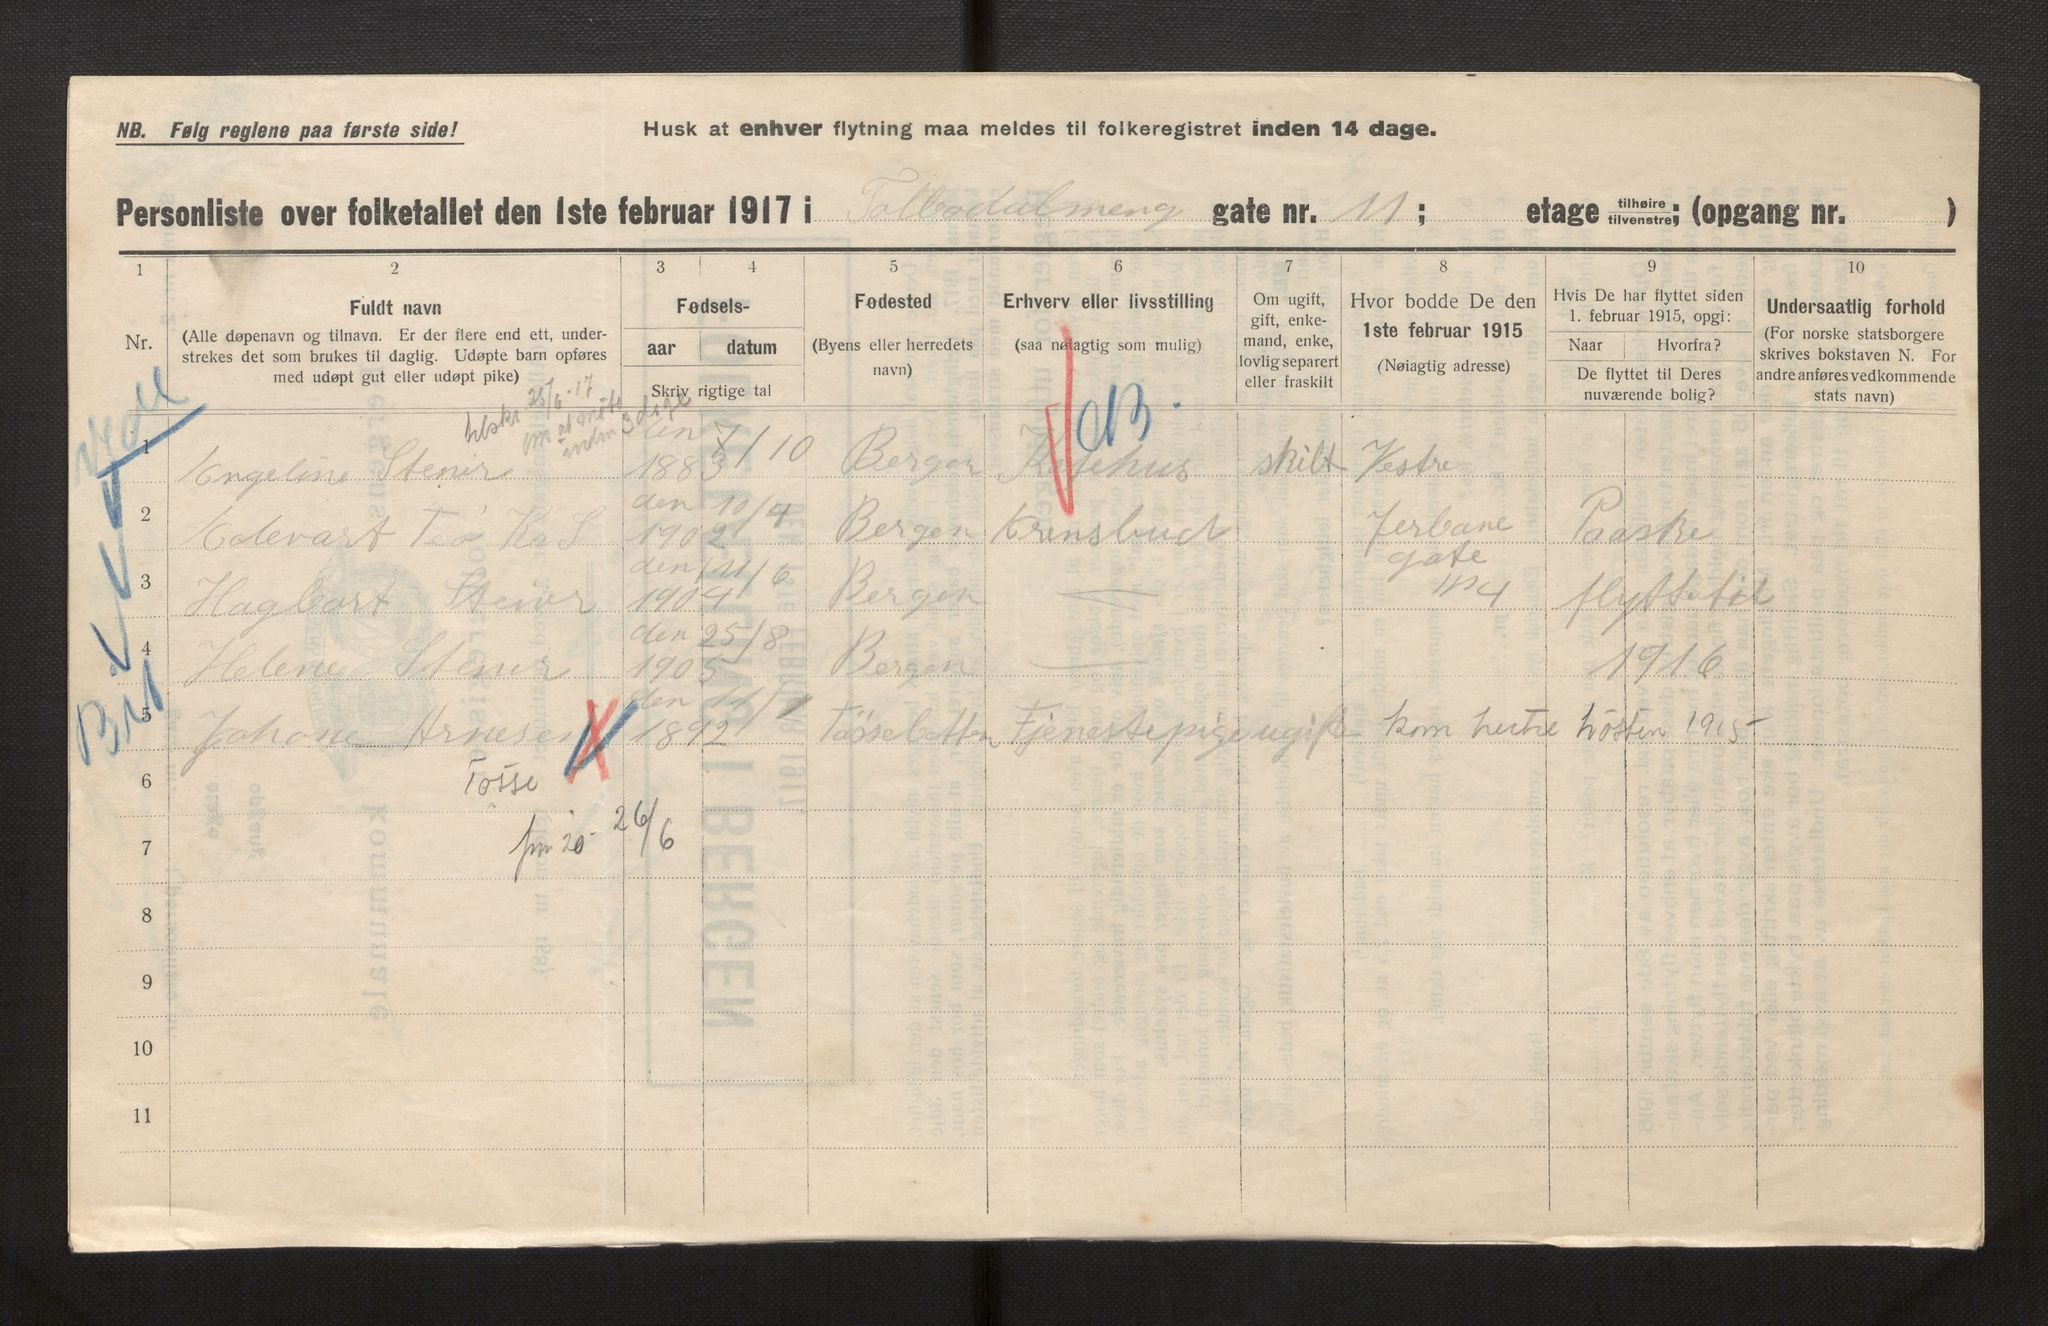 NB. Følg reglene paa første side!
Husk at enhver flytning maa meldes til folkeregistret inden 14 dage.
Personliste over folketallet den 1ste februar 1917 i Tolbodalmeng gate nr. 11 ; etage tilhøire tilvenstre ; (opgang nr. )
1 2 3 4 5 6 7 8 9 10
Nr.
Fuldt navn
(Alle døpenavn og tilnavn. Er der flere end ett, under-
strekes det som brukes til daglig. Udøpte barn opføres
med udøpt gut eller udøpt pike)
Fødsels-
aar datum
Skriv rigtige tal
Fødested
(Byens eller herredets
navn)
Erhverv eller livsstilling
(saa nøiagtig som mulig)
Om ugift,
gift, enke-
mand, enke,
lovlig separert
eller fraskilt
Hvor bodde De den
1ste februar 1915
(Nøiagtig adresse)
Hvis De har flyttet siden
1. februar 1915, opgi:
Naar Hvorfra?
De flyttet til Deres
nuværende bolig?
Undersaatlig forhold
(For norske statsborgere
skrives bokstaven N. For
andre anføres vedkommende
stats navn)
tilskr. 25/6-17
om at møte
inden 3 dage
den 7/10
1 Engeline Stener 1883 Bergen skilt Vestre
den 10/4
2 Edevart Teo Kr S 1902 Bergen Jerbane Paaske
gate
den 11/6
3 Hagbart Stener 1904 Bergen no 4 flyttet
den 25/8
4 Helene Stener 1905 Bergen 1916
den 11/1
5 Johane Arnesen 1892 Tjenestepige ugift kom hertil hösten 1915
6 Tosse
7 26/6
8
9
10
11